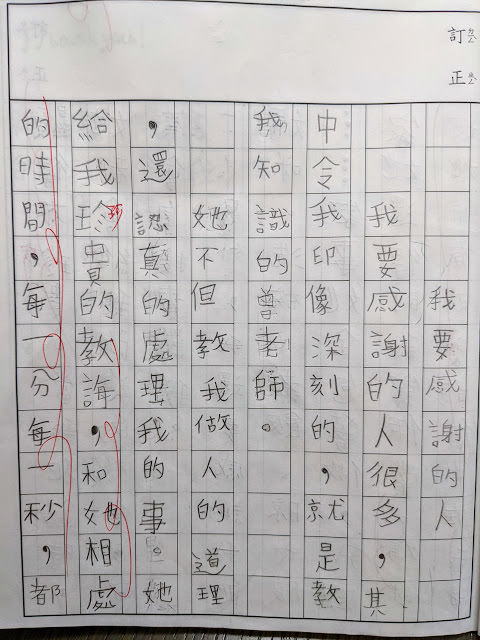 訂正
我要感謝的人
我要感謝的人很多，其
中令我印像深刻的，就是教
我知識的曾老師。
她不但教我做人的道理
，還認真的處理我的事。她
給我珍貴的教誨，和她相處
的時間，每一分每一秒，都